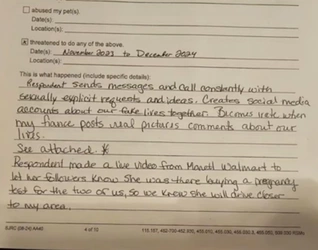 abused my pet(s).
Date(s):
Location(s):
threatened to do any of the above.
Date(s): November 2023 to December 2024
Location(s):
This is what happened (include specific details):
Respondent sends messages and call constantly with
sexually explicit requests and ideas. Creates social media
accounts about our fake lives together. Becomes irate when
my fiance posts real pictures comments about our
lives.
See attached *
Respondent made a live video from Walmart to
let her followers know she was there buying a pregnancy
test for the two of us, so we know she will drive closer
to my area.
4 of 10